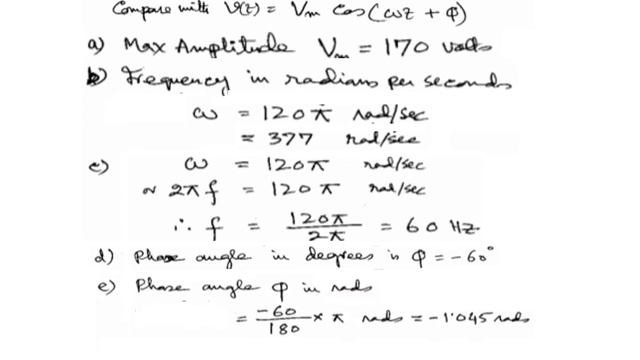 Compare with V(t) = Vm Cos(ωt + φ)
a) Max Amplitude Vm = 170 volts
b) Frequency in radians per seconds
ω = 120π rad/sec
= 377 rad/sec
c) ω = 120π rad/sec
~ 2πf = 120π rad/sec
∴ f = 120π/2π = 60 Hz
d) Phase angle in degrees is φ = -60°
e) Phase angle φ in rads
= -60/180 × π rads = -1.045 rads